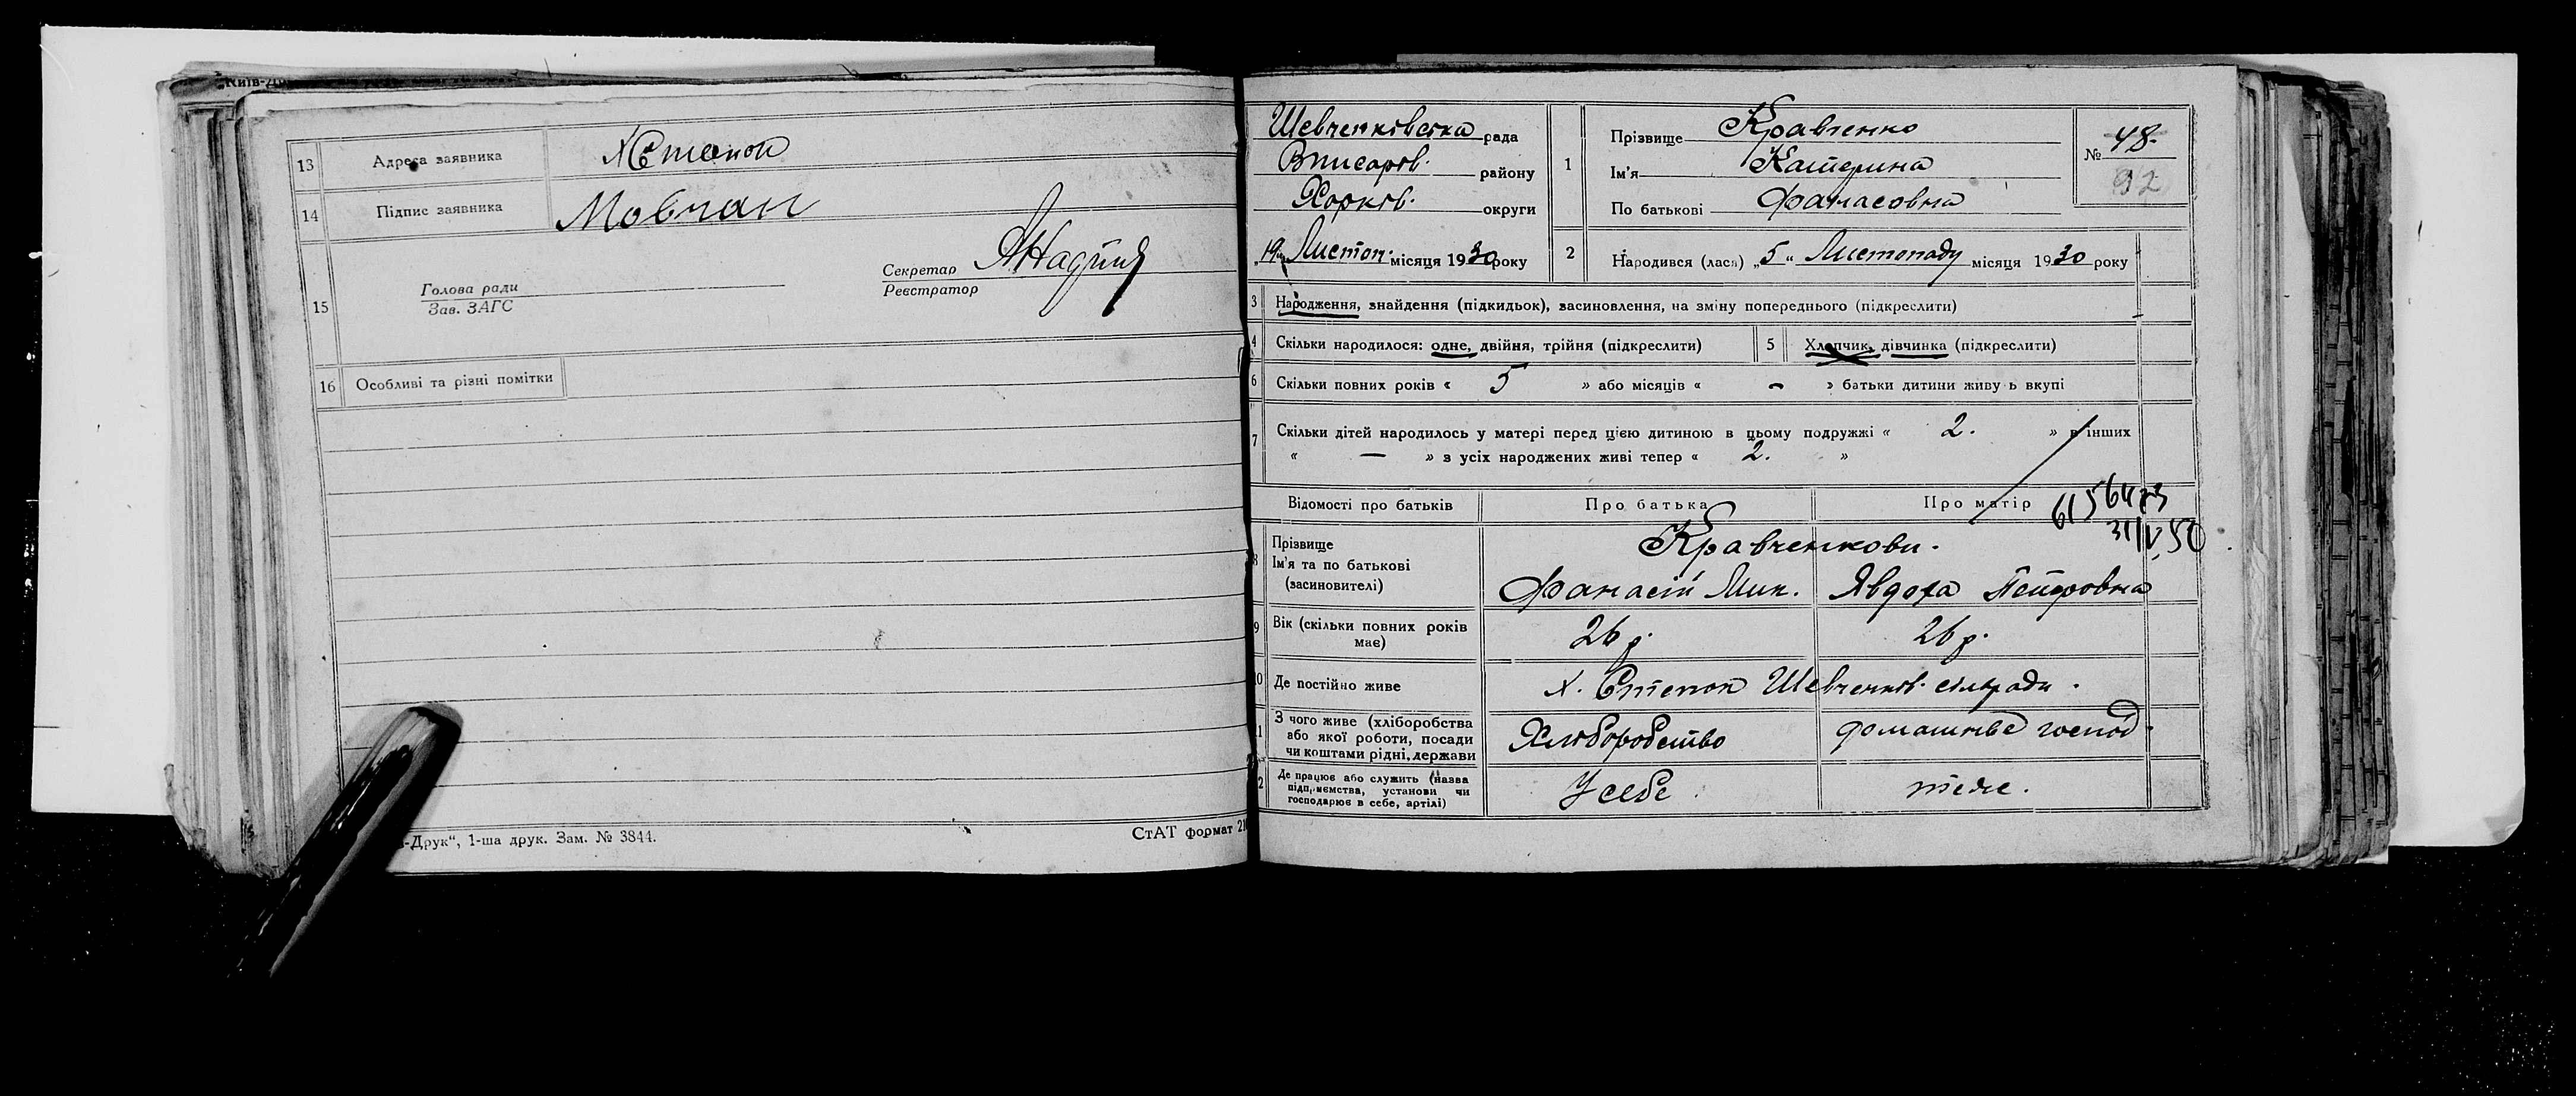 Київ-Др
13 Адреса заявника Х Степок
14 Підпис заявника Мовчан
15 Голова ради
Зав. ЗАГС
Секретар
Реєстратор
16 Особливі та різні помітки
-Друк“, 1-ша друк. Зам. № 3844.
СтАТ формат 21
Шевченківська рада
району
Харків. округи
„19“ Листоп. місяця 1930 року
1 Прізвище Кравченко
Ім'я Катерина
По батькові Фанасовна
№ 48.
92
2 Народився (лася) „5“ Листопаду місяця 1930 року
3 Народження, знайдення (підкидьок), засиновлення, на зміну попереднього (підкреслити)
4 Скільки народилося: одне, двійня, трійня (підкреслити) 5 Хлопчик, дівчинка (підкреслити)
6 Скільки повних років « 5 » або місяців « – » батьки дитини живу ь вкупі
7 Скільки дітей народилось у матері перед цією дитиною в цьому подружжі « 2. » в інших
« — » з усіх народжених живі тепер « 2. »
Відомості про батьків Про батька Про матір
8 Прізвище Кравченкови.
Ім'я та по батькові
(засиновителі) Фанасій Мик. Явдоха Петровна
9 Вік (скільки повних років
має) 26 р. 26 р.
10 Де постійно живе х. Степок Шевченків. сільради.
11 З чого живе (хліборобства
або якої роботи, посади
чи коштами рідні, держави Хліборобство домашнве господ.
12 Де працює або служить (назва
підприємства, установи чи
господарює в себе, артілі) У себе. теж.